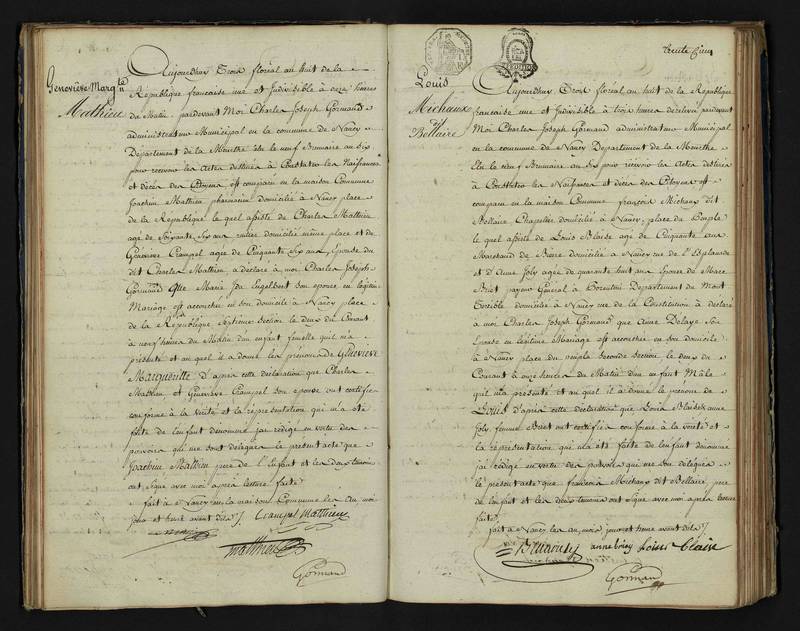 Geneviève Margte
Mathieu
Aujourdhuy Trois floréal an huit de la
République française une et Indivisible à onze heures
du Matin pardevant Moi Charles Joseph Gormand
administrateur Municipal en la commune de Nancy
Département de la Meurthe élu le neuf Brumaire an six
pour recevoir les Actes destinés à Constater les Naissances
et décès des Citoyens, est comparu en la maison Commune
Joachim Mathieu pharmacien domicilié à Nancy place
de la République le quel assisté de Charles Mathieu
agé de Soixante Six ans rentier domicilié même place et de
Géneviève Crampel agée de Cinquante Six ans, Epouse du
dit Charles Mathieu a déclaré à moi Charles Joseph
Gormand que Marie Ida Engelbert son epouse en légitime
Mariage est accouchée en son domicile à Nancy place
de la République Septieme Section le deux du Courant
à neuf heures du Matin d'un enfant femelle qui m'a
présenté et au quel il a donné les prénoms de Génevieve
Margueritte D'après cette déclaration que Charles
Mathieu et Géneviève Crampel son epouse ont certifiée
conforme à la Vérité et la représentation qui m'a été
faite de l'enfant dénommé j'ai rédigé en vertu des
pouvoirs qui me sont délégués le présent acte que
Joachim Mathieu pere de l'Enfant et les deux témoins
ont signé avec moi après lecture faite
fait à Nancy en la maison Commune les An mois
jour et heure avant dits /. Crampel Matthieu
matthieu
Gormand
trente cinq
Louis
Michaux
dit
Bellaire
Aujourdhuy Trois floréal an huit de la République
française une et Indivisible à trois heures de relevée pardevant
Moi Charles Joseph Gormand administrateur Municipal
en la commune de Nancy Département de la Meurthe
Elu le neuf Brumaire an six pour recevoir les Actes destinés
à Constater les Naissances et décès des Citoyens est
comparu en la maison Commune françois Michaux dit
Bellaire Chapelier domicilié à Nancy, place du Peuple
le quel assisté de Louis Blaise agé de Cinquante ans
Marchand de Biere domicilié à Nancy rue de l'Esplanade
et d'Anne Joly agée de quarante huit ans Epouse de Marc
payeur Général à Département du Mont
Terrible domiciliée à Nancy rue de la Constitution a déclaré
à moi Charles Joseph Gormand que Anne Delaye Son
Epouse en légitime Mariage est accouchée en son domicile
à Nancy place du peuple Seconde Section le deux du
Courant à onze heures du Matin d'un enfant Mâle
qu'il m'a présenté et au quel il a donné le prénom de
Louis d'après cette déclaration que Louis Blaise & anne
Joly femme ont certifiée conforme à la vérité et
la représentation qui m'a été faite de l'enfant dénommé
j'ai rédigé en vertu des pouvoirs qui me sont délégués
le présent acte que françois Michaux dit Bellaire, pere
de l'enfant et les deux témoins ont signé avec moi après lecture
faite
fait à Nancy les an mois jour et heure avant dits /
Louis Blaise
Gormand